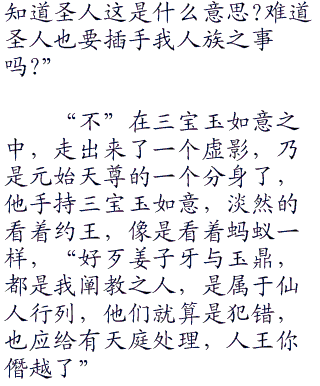 知道圣人这是什么意思?难道
圣人也要插手我人族之事
吗?”
“不”在三宝玉如意之
中，走出来了一个虚影，乃
是元始天尊的一个分身了，
他手持三宝玉如意，淡然的
看着约王，像是看着蚂蚁一
样，“好歹姜子牙与玉鼎，
都是我阐教之人，是属于仙
人行列，他们就算是犯错，
也应给有天庭处理，人王你
僭越了”